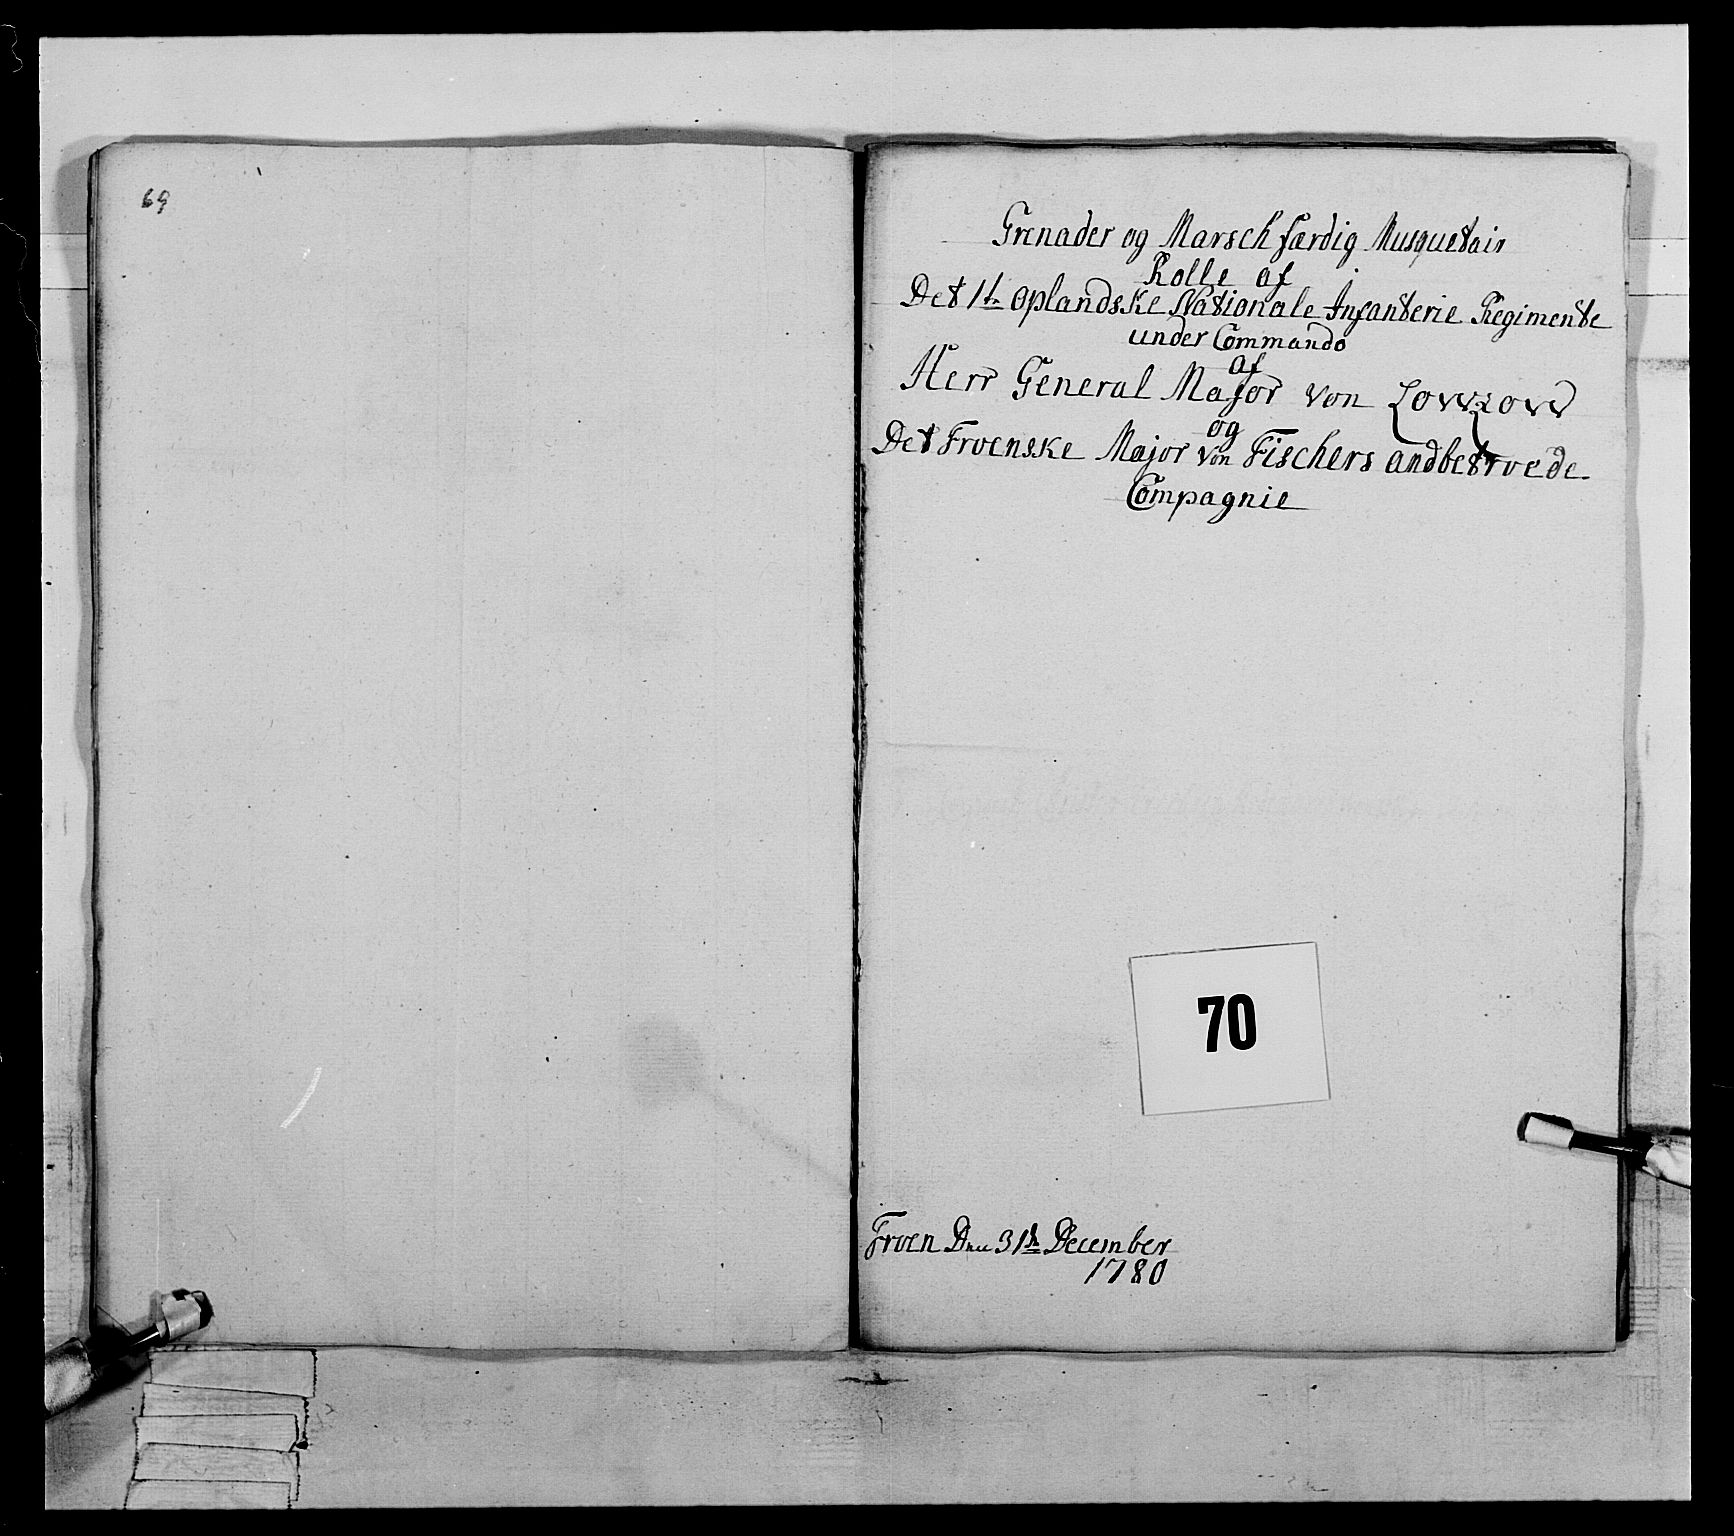 69
Grenader og Marsch færdig Musquetair
Rolle af
Det 1te Oplandske Nationale Infanterie Regimente
under Commando
af
Herr General Major von Lowzow
og
Det Froenske Major von Fischers andbetroede
Compagnie
70
Froen Den 31te December
1780